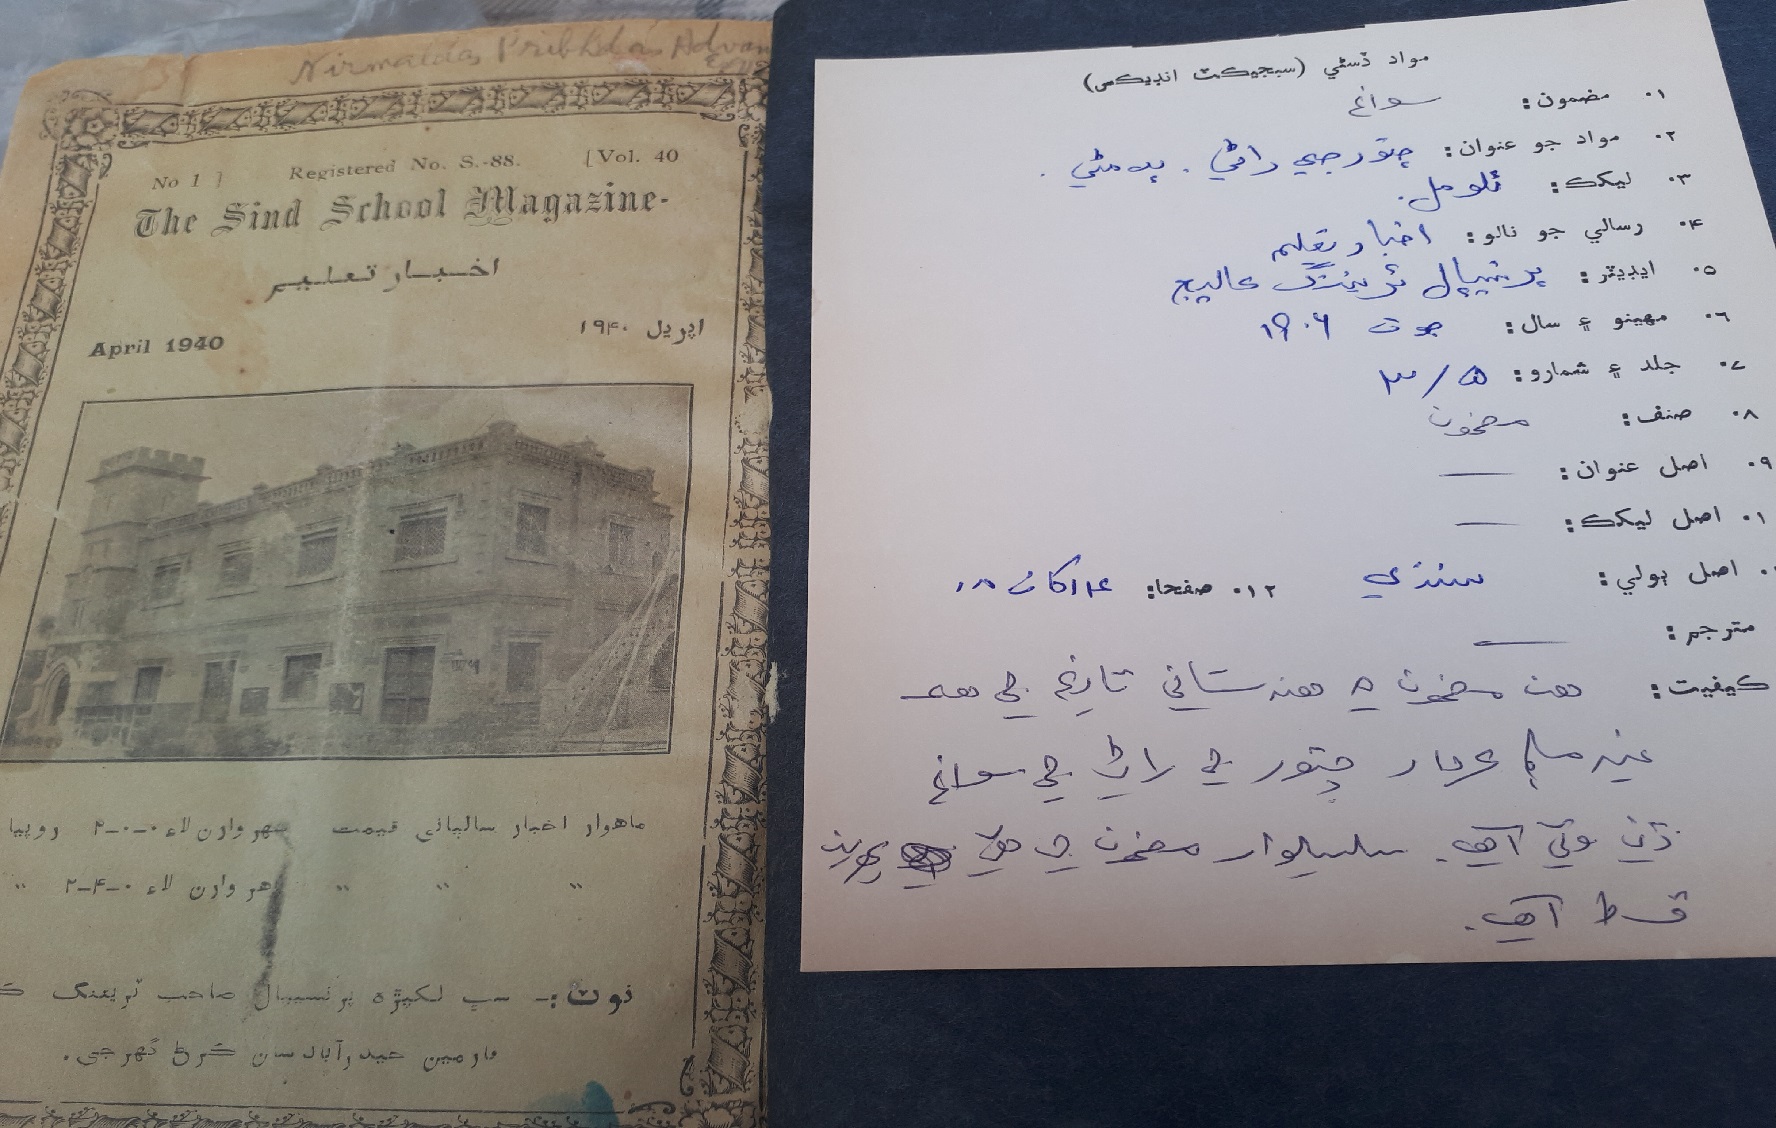 Nirmaldas Pribhdas Advani
No 1 ] Registered No. S.-88. [Vol. 40
The Sind School Magazine-
اخبار تعليم
April 1940 اپريل ۱۹۴۰
ماهوار اخبار ساليانی قيمت شهر وارن لاءِ ۰-۰-۲ روپيا
〃 〃 〃 ٻاهر وارن لاءِ ۰-۴-۲ 〃
نوٽ:- سڀ لکپڙه پرنسيپال صاحب ٽريننگ
فارمين حيدرآباد سان ڪرڻ گهرجي.
مواد ڏسڻي (سبجيڪٽ انڊيڪس)
۱. مضمون: سوانح
۲. مواد جو عنوان: چتور جي راڻي. پدمڻي.
۳. ليکڪ: ٿلومل.
۴. رسالي جو نالو: اخبار تعليم
۵. ايڊيٽر: پرنسيپال ٽريننگ ڪاليج
۶. مهينو ۽ سال: جون ۱۹۰۶
۷. جلد ۽ شمارو: ۵/۳
۸. صنف: مضمون
۹. اصل عنوان: ——
۱۰. اصل ليکڪ: ——
اصل ٻولي: سنڌي ۱۲. صفحا: ۱۴ کان ۱۸
مترجم: ——
ڪيفيت: هن مضمون ۾ هندستاني تاريخ جي هڪ
ڪردار چتور جي راڻي جي سوانح
ڏني وئي آهي. سلسليوار مضمون جي هيءَ پهرين
قسط آهي.